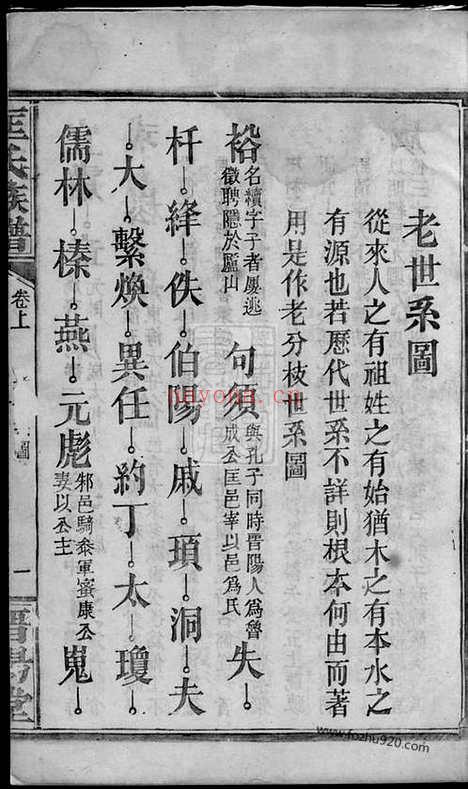 老世系圖
從來人之有祖姓之有始猶木之有本水之
有源也若歷代世系不詳則根本何由而著
用是作老分枝世系圖
裕 名續字子者屢逃徵聘隱於廬山 句須 與孔子同時晋陽人為魯成公匡邑宰以邑為氏 失
杆 絳 佚 伯陽 戚 頊 洞 夫
大 繫煥 異任 約丁 太 瓊
儒林 榛 燕 元彪 邪邑騎叅軍蜜康公妻以公主 嵬
匡氏族譜
卷上
圖
一
晋陽堂
nayona.cn
www.fozhu920.com